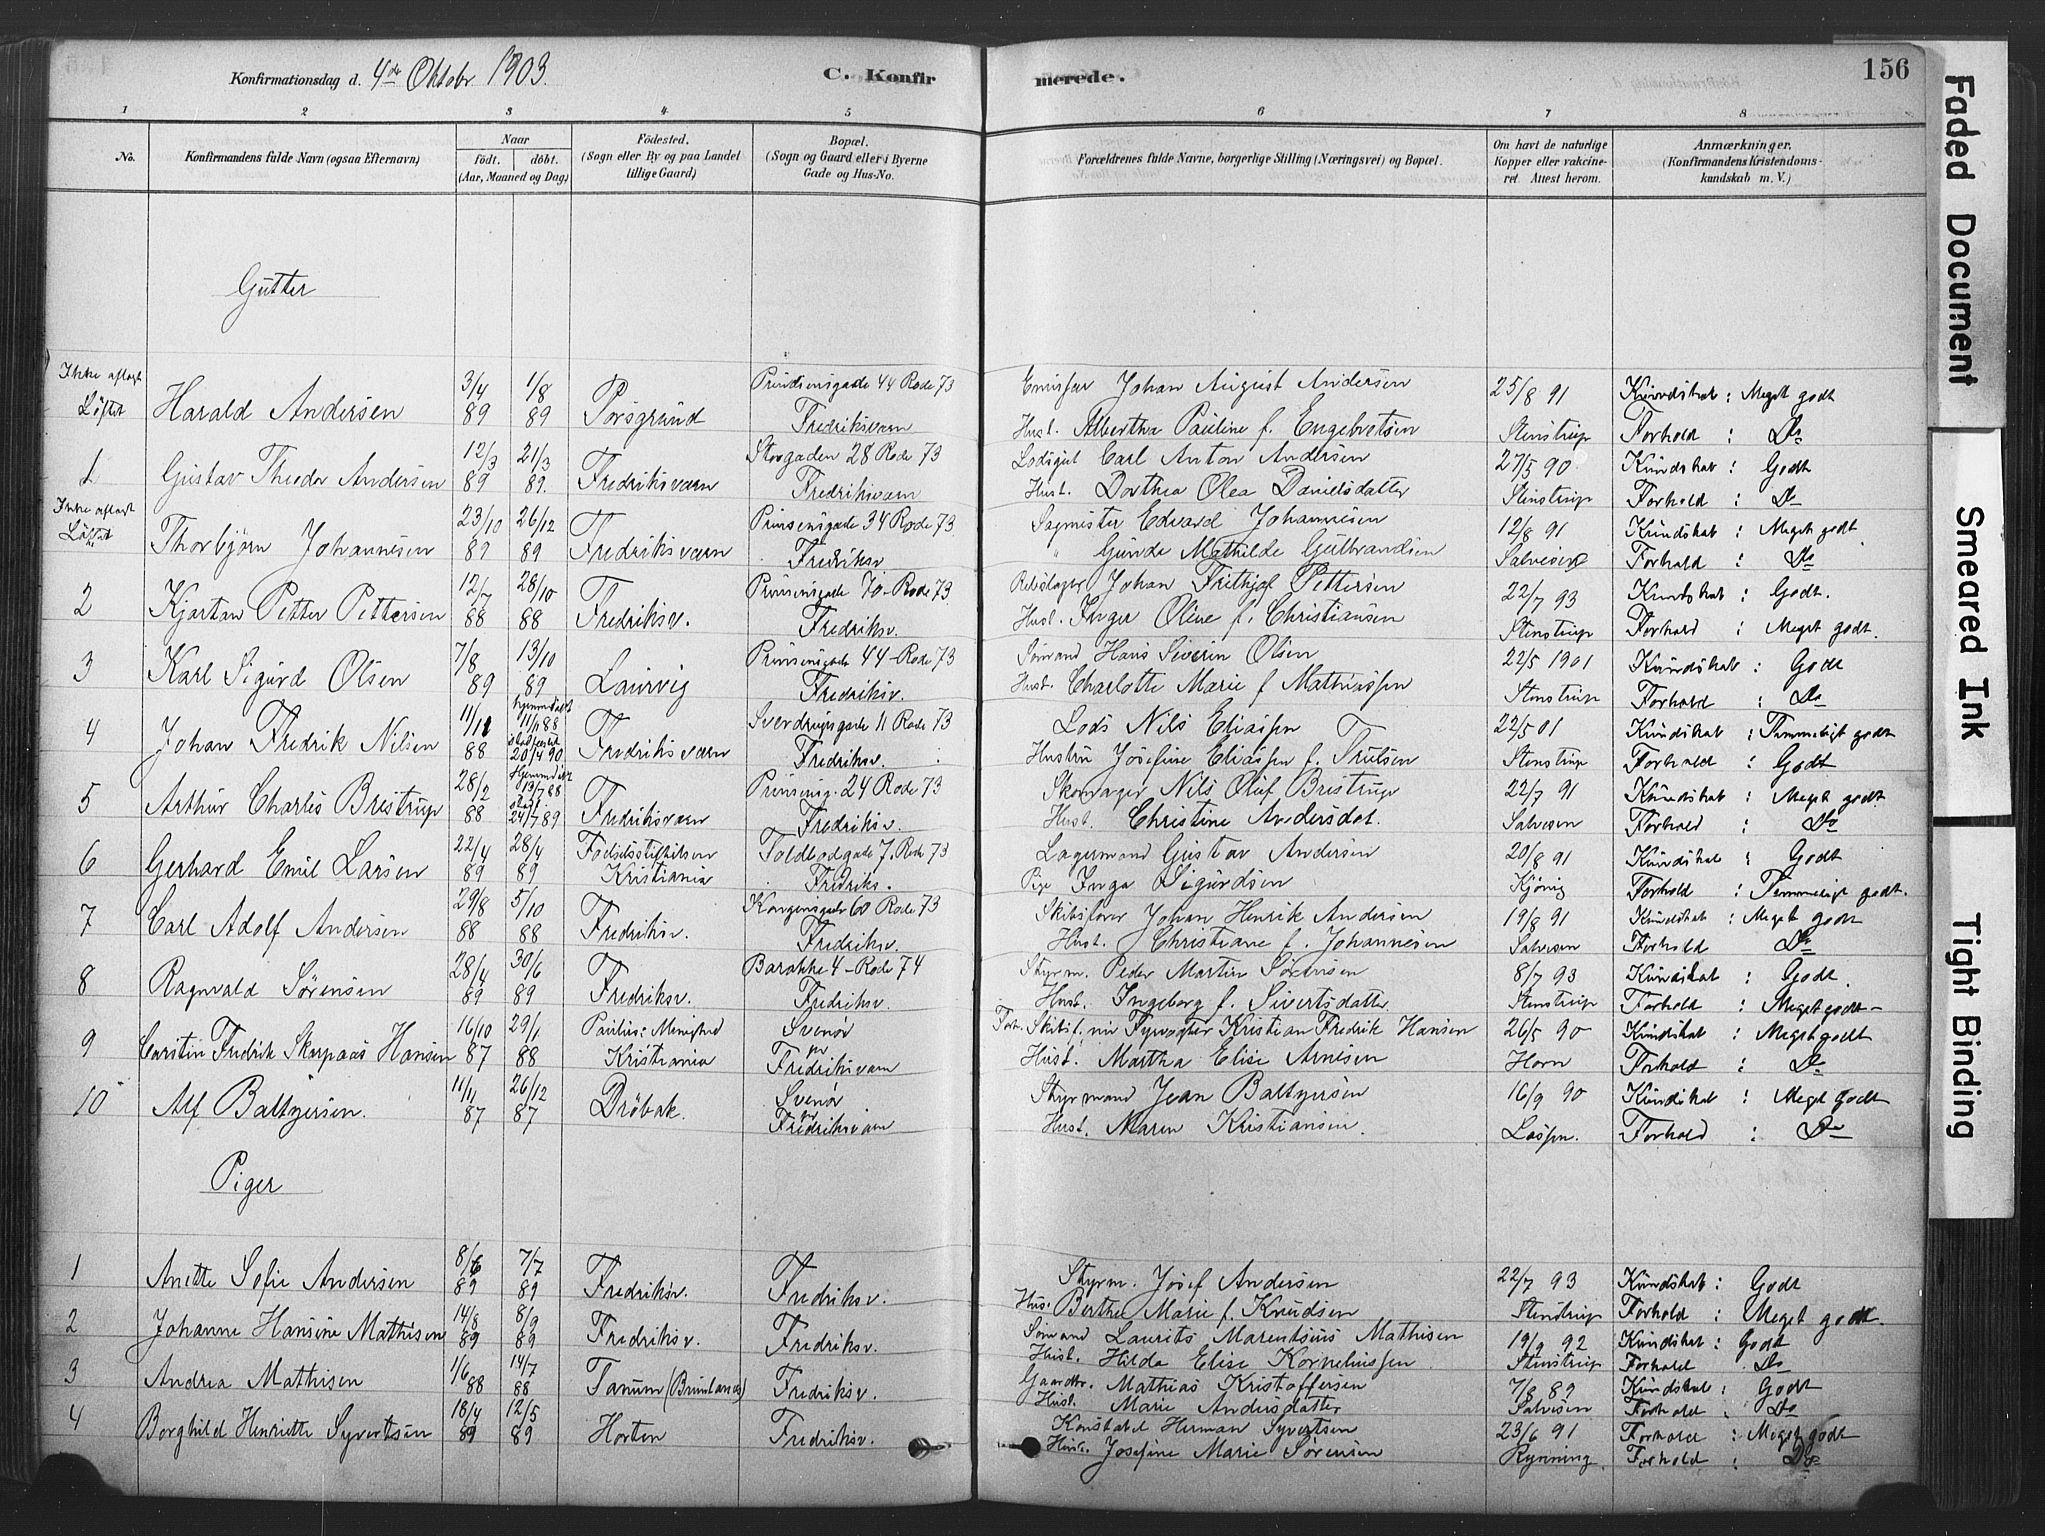 Konfirmationsdag d. 4de Oktober 1903.
C. Konfir merede.
156
1 2 3 4 5 6 7 8
No.
Konfirmandens fulde Navn (ogsaa Efternavn)
Naar
födt. döbt.
(Aar, Maaned og Dag)
Födested.
(Sogn eller By og paa Landet
lillige Gaard)
Bopæl.
(Sogn og Gaard eller i Byerne
Gade og Hus-No.
Forældrenes fulde Navne, borgerlige Stilling (Næringsvei) og Bopæl.
Om havt de naturlige
Kopper eller vakcine-
ret. Attest herom.
Anmærkninger.
(Konfirmandens Kristendoms-
kundskab m. V.)
Gutter
Ikke aflagt 3/4 1/8 Prindsensgade 44 Rode 73 Johan August Andersen 25/8 91 Kundskab : Meget godt
Löftet Harald Andersen 89 89 Porsgrund Fredriksværn Hust. Albertha Pauline f. Engebretsen Stenstrup Forhold : Do
12/3 21/3 Storgaden 28 Rode 73 Lodsgut Carl Anton Andersen 27/5 90 Kundskab : Godt
1 Gustav Theodor Andersen 89 89. Fredriksværn Fredriksværn Hust. Dorthea Olea Danielsdatter Stenstrup Forhold : Do
Ikke aflagt 23/10 26/12 Prinsensgade 34 Rode 73 Sagmester Edvard Johannesen 12/8 91 Kundskab : Meget godt
Löftet Thorbjørn Johannesen 89 89 Fredriksværn Fredriksv. " Gunda Mathilde Gulbrandsen Salvesen Forhold : Do
12/7 28/10 Prinsensgade 70 - Rode 73 Rebslager Johan Frithjof Pettersen 22/7 93 Kundskab : Godt.
2 Kjartan Petter Pettersen 88 88 Fredriksv. Fredriksv. Hust. Inger Oline f. Christiansen Stenstrup Forhold : Meget godt.
7/8 13/10 Prinsensgade 44 - Rode 73 Sömand Hans Siverin Olsen 22/5 1901 Kundskab : Godt
3 Karl Sigurd Olsen 89 89 Laurvig Fredriksv. Hust. Charlotte Marie f Mathiassen Stenstrup Forhold : Do
11/11 hjemmedöbt 11/11 88 Sverdrupsgade 11 Rode 73 Lods Nils Eliassen 22/5 01 Kundskab : Temmeligt godt
4 Johan Fredrik Nilsen 88 stadfæstet 20/4 90 Fredriksværn Fredriksv. Hustru Josefine Eliassen f. Trulsen Stenstrup Forhold : Godt
28/2 Hjemmedöbt 13/7 88 Prinsensg. 24 Rode 73 Skomager Nils Oluf Bristrup 22/7 91 Kundskab : Meget godt
5 Arthur Charles Bristrup 88 24/7 89 Fredriksværn Fredriksv. Hust. Christine Andersdat. Salvesen Forhold : Do
22/4 28/4 Födselsstiftelsen Toldbodgade 7. Rode 73 Lagermand Gustav Andersen 20/8 91 Kundskab : Godt
6 Gerhard Emil Larsen 89 89 Kristiania Fredriks. Pige Inga Sigurdsen Kjönig Forhold : Temmeligt godt.
29/8 5/10 Kongensgade 60 Rode 73 Johan Henrik Andersen 19/8 91 Kundskab : Meget godt
7 Carl Adolf Andersen 88 88 Fredriksv. Fredriksv. Hust. Christiane f. Johannesen Salvesen Forhold Do
28/4 30/6 Barakke 4 - Rode 74 Styrm. Peder Martin Sörensen 8/7 93 Kundskab : Godt.
8 Ragnvald Sørensen 89 89 Fredriksv. Fredriksv. Hust. Ingeborg f. Sivertsdatter Stenstrup Forhold : Meget godt -
16/10 29/1 Paulus: Menighed Svenör Forh. Skibsf. nu Fyrvogter Kristian Fredrik Hansen 26/5 90 Kundskab : Meget godt
9 Carstin Fredrik Skarpaas Hansen 87 88 Kristiania pr Fredriksværn Hust. Martha Elise Arnesen Horn Forhold : Do
11/11 26/12 Svenör Styrmand Jean Baltzersen 16/9 90 Kundskab : Meget godt
10 Alf Baltzersen. 87 87 Dröbak. pr Fredriksværn Hust. Maren Kristiansen. Lassen. Forhold : Do
Piger
8/6 7/7 Styrm. Josef Andersen 22/7 93 Kundskab : Godt
1 Anette Sofie Andersen 89 89 Fredriksv. Fredriksv. Hus. Berthe Marie f. Knudsen Stenstrup Forhold : Meget godt.
14/8 8/9 Sömand Laurits Marentsius Mathisen 19/9 92 Kundskab : Godt
2 Johanne Hansine Mathisen 89 89 Fredriksv. Fredriksv. Hust. Hilda Elise Kornelinssen Stenstrup Forhold Do
1/6 14/7 Gaardbr. Mathias Kristoffersen 7/8 89 Kundskab : Godt
3 Andrea Mathisen 88 88 Tanum (Brunlanæs) Fredriksv. Hust. Marie Andersdatter Salvesen Forhold : Do
18/4 12/5 Konstabel Herman Syvertsen 23/6 91 Forhold : Meget godt
4 Borghild Henriette Syvertsen 89 89 Horten Fredriksv. Hust. Josefine Marie Sörensen Rynning. Forhold : Do
Faded Document
Smeared Ink
Tight Binding